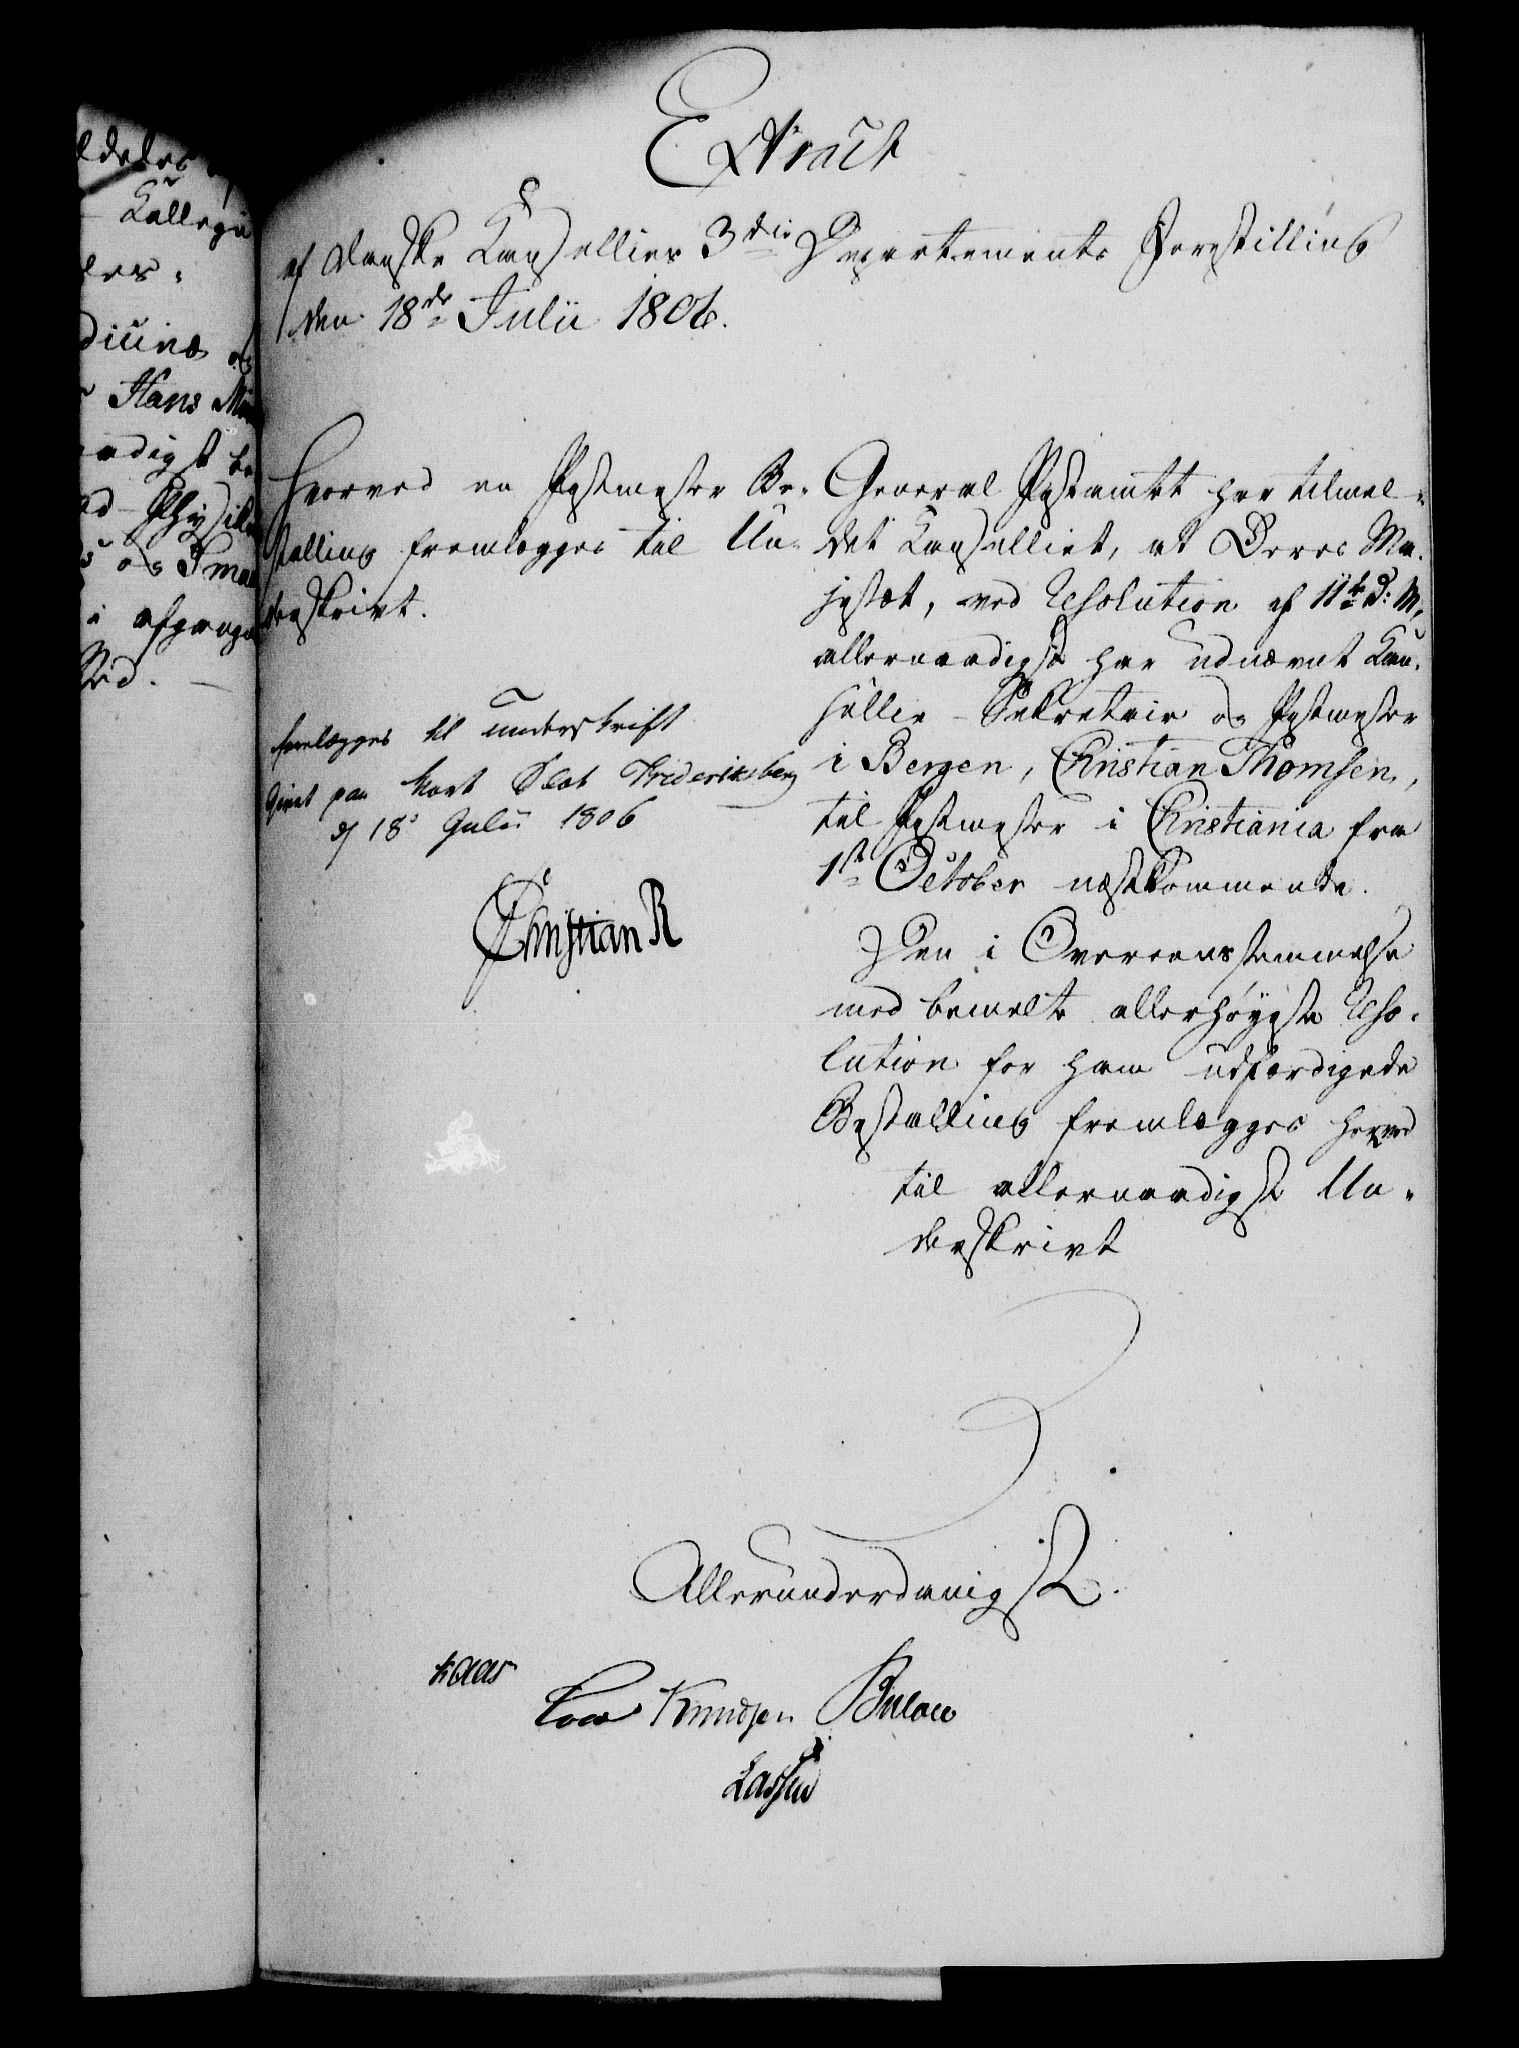 Extract
af danske Kancelliets 3die Departements Forestilling
den 18de Julii 1806.
Hvorved en Postmester Be-
stalling fremlægges til Un-
derskrivt.
forelægges til underskrift
Givet paa Vort Slot Frideriksberg
d 18 Julii 1806
Christian R
General Postamtet har tilmel-
det Kancelliet, at Deres Ma-
jestæt, ved Resolution af 11te d: M,
allernaadigst har udnævnt Kan-
cellie-Sekretair og Postmester
i Bergen, Christian Thomsen,
til Postmester i Christiania fra
1ste October næstkommende.
Den i Overeensstemmelse
med bemelte allerhøyeste Reso-
lution for ham udfærdigede
Bestalling fremlægges herved
til allernaadigst Un-
derskrivt
Allerunderdanigst.
Kaas
Koes Knudsen Bulow
Lassen
Collegii
Hans
naadigst be
Physik
afgangne